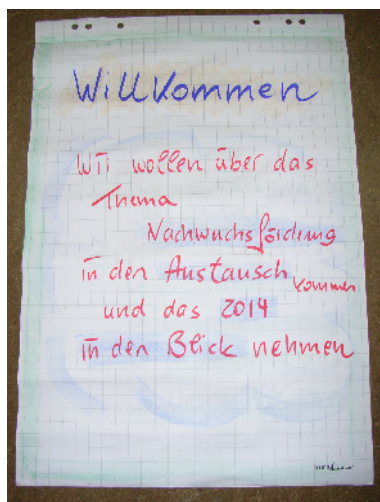 Willkommen
Wir wollen über das
Thema
Nachwuchsförderung
in den Austausch kommen
und das 2014
in den Blick nehmen